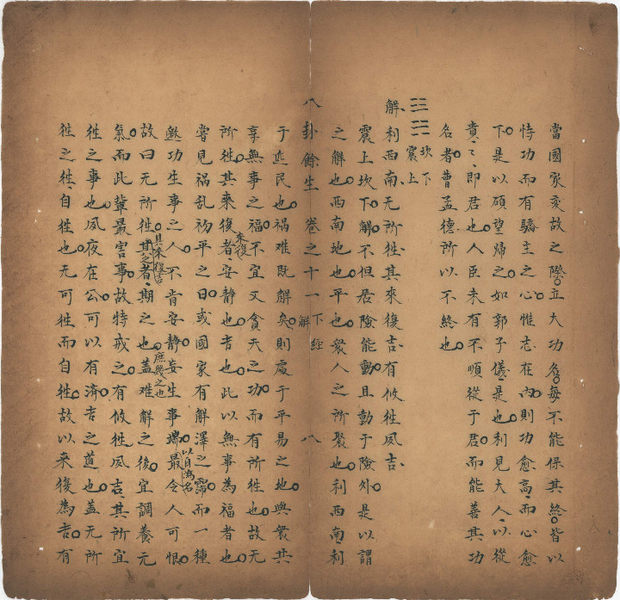 當國家變故之際立大功名每不能保其終皆以
恃功而有驕主之心惟志在內則功愈高而心愈
下是以碩望歸之如郭子儀是也利見大人以從
貴〻即君也人臣未有不順從于君而能善其功
名者曹孟德所以不終也
䷧ 坎下
震上
解利西南无所往其來復吉有攸往夙吉
震上坎下解不但居險能動且動于險外是以謂
之解也西南地也平也衆人之所聚也利西南利
八卦餘生 卷之十一 下經 解 八
于庶民也禍難既解矣則處于平易之地與衆共
享無事之福不宜又貪天之功而有所往也故无
所往其來復者安靜也吉也此以無事為福者也
來復
嘗見禍亂初平之日或國家有解澤之霈而一種
邀功生事之人不肯安靜妄生事端最令人可恨
以自為名
故曰无所往其之者期之也蓋難解之後宜調養元
其來復吉
庶幾之也
氣而此輩最害事故特戒之有攸往夙吉其所宜
往之事也夙夜在公可以有濟吉之道也蓋无所
往之往自往也无可往而自往故以來復為吉有